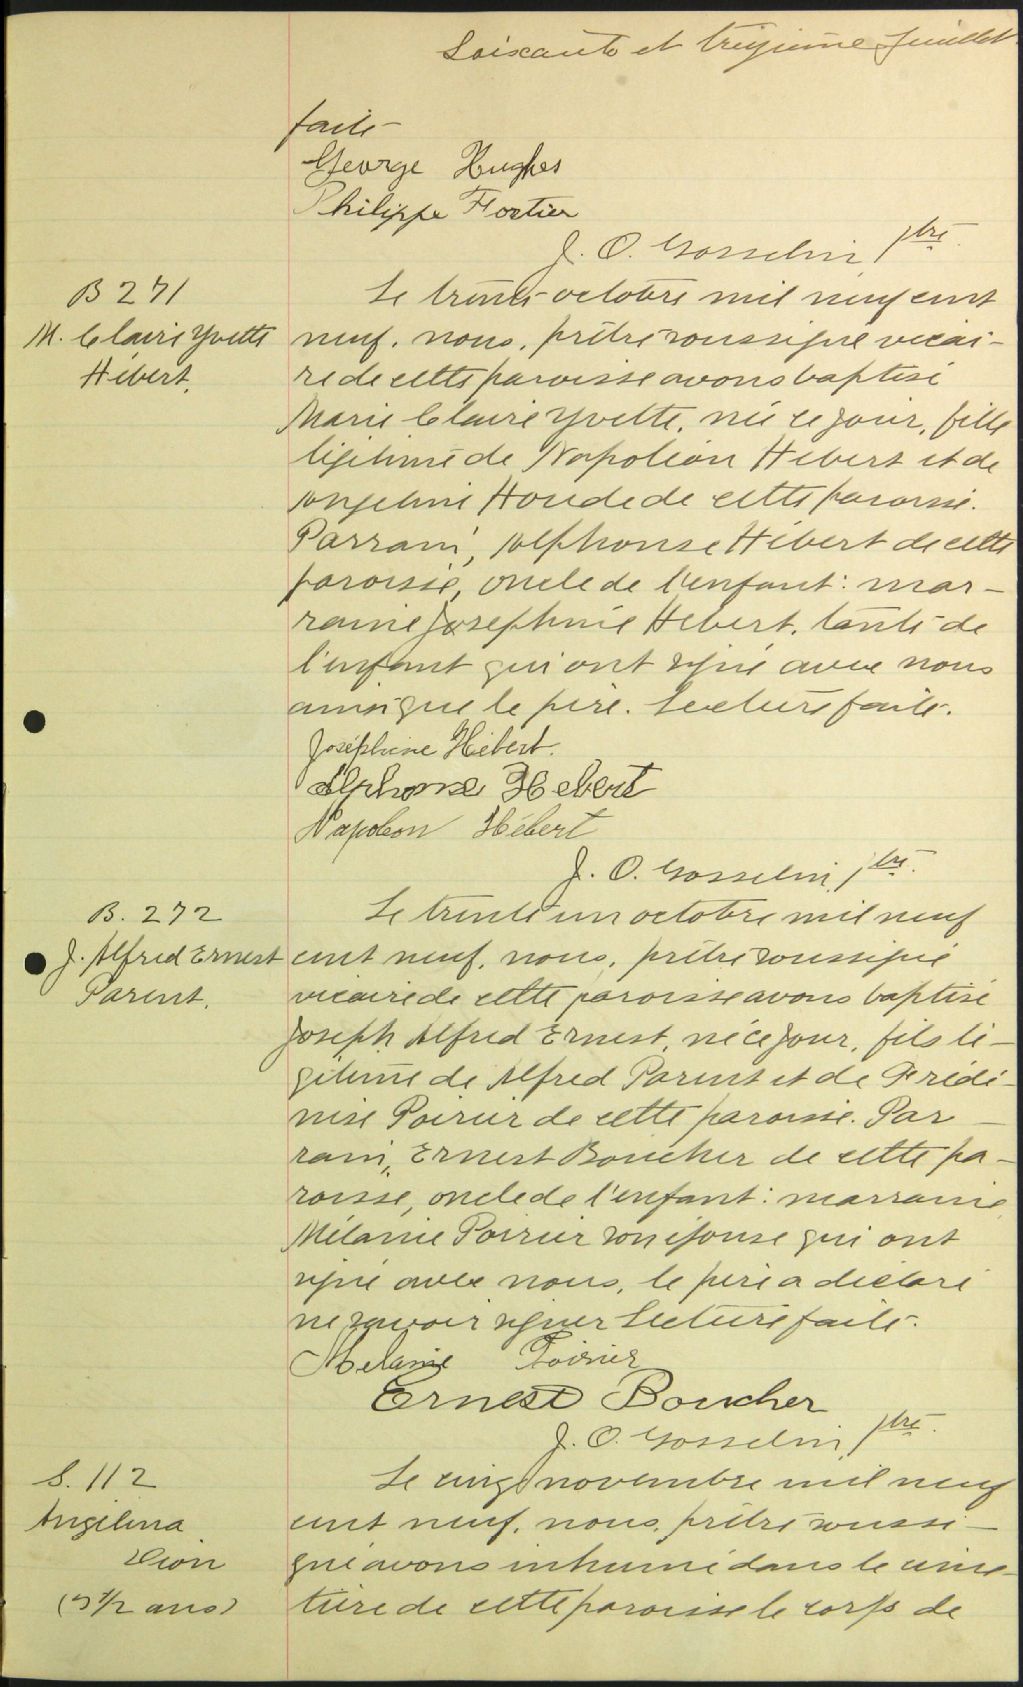 Soixante et treizième feuillet.
faite
George Hughes
Philippe Fortier
J. O. Gosselin, Ptre.
B 271
M. Claire Yvette
Hébert.
Le trente octobre mil neuf cent
neuf, nous, prêtre soussigné vicai-
re de cette paroisse avons baptisé
Marie Claire Yvette, née ce jour, fille
légitime de Napoléon Hébert et de
Angelina Houde de cette paroisse.
Parrain, Alphonse Hébert de cette
paroisse, oncle de l'enfant: mar-
raine Josephine Hébert, tante de
l'enfant qui ont signé avec nous
ainsi que le père. Lecture faite.
Joséphine Hébert.
Alphonse Hebert
Napoleon Hébert
J. O. Gosselin, Ptre.
B. 272
J. Alfred Ernest
Parent.
Le trente un octobre mil neuf
cent neuf, nous, prêtre soussigné
vicaire de cette paroisse avons baptisé
Joseph Alfred Ernest, né ce jour, fils lé-
gitime de Alfred Parent et de Frédé-
nise Poirier de cette paroisse. Par-
rain, Ernest Boucher de cette pa-
roisse, oncle de l'enfant: marraine
Mélanie Poirier son épouse qui ont
signé avec nous, le père a déclaré
ne savoir signer Lecture faite.
Melanie Poirier
Ernest Boucher
J. O. Gosselin, Ptre.
S. 112
Angélina
Dion
(5 1/2 ans)
Le cinq novembre mil neuf
cent neuf, nous, prêtre soussi-
gné avons inhumé dans le cime-
tière de cette paroisse le corps de